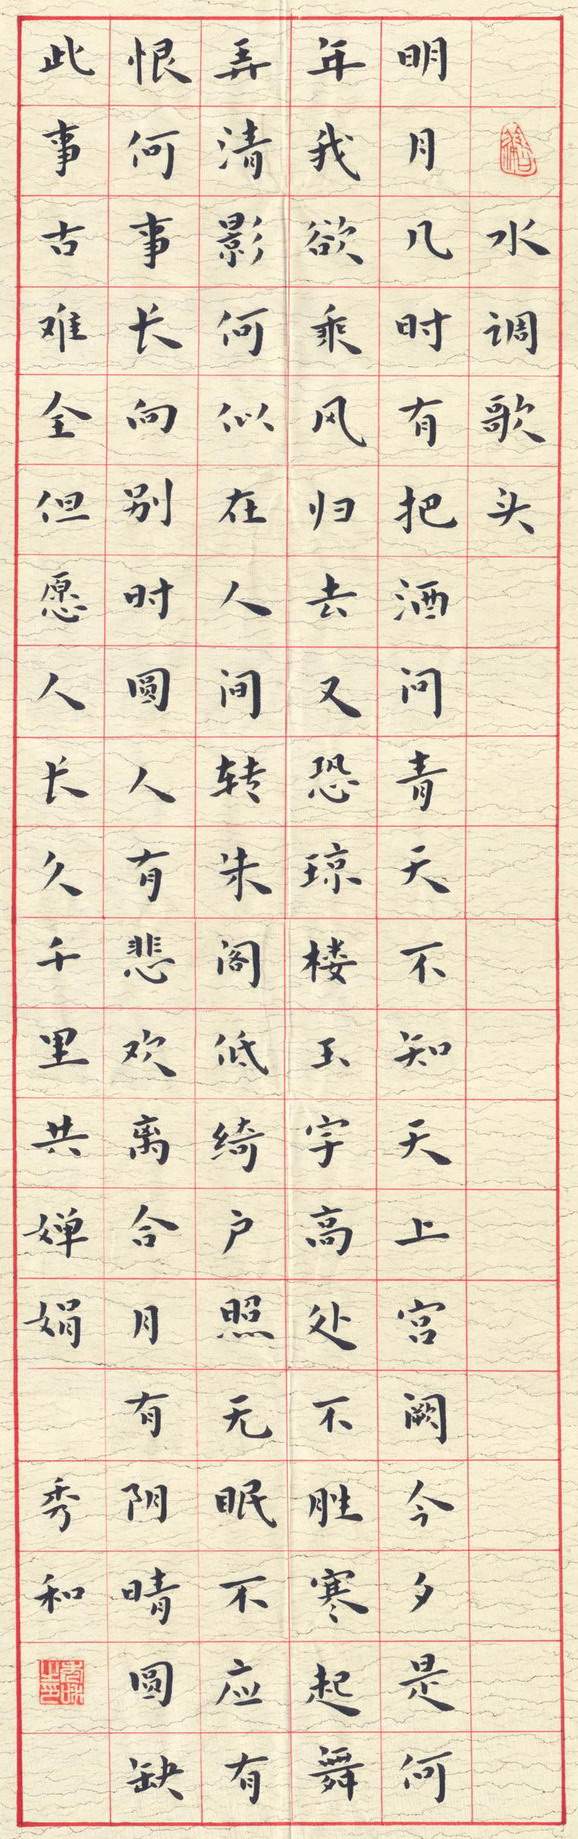 水调歌头
明月几时有把酒问青天不知天上宫阙今夕是何
年我欲乘风归去又恐琼楼玉宇高处不胜寒起舞
弄清影何似在人间转朱阁低绮户照无眠不应有
恨何事长向别时圆人有悲欢离合月有阴晴圆缺
此事古难全但愿人长久千里共婵娟
秀和